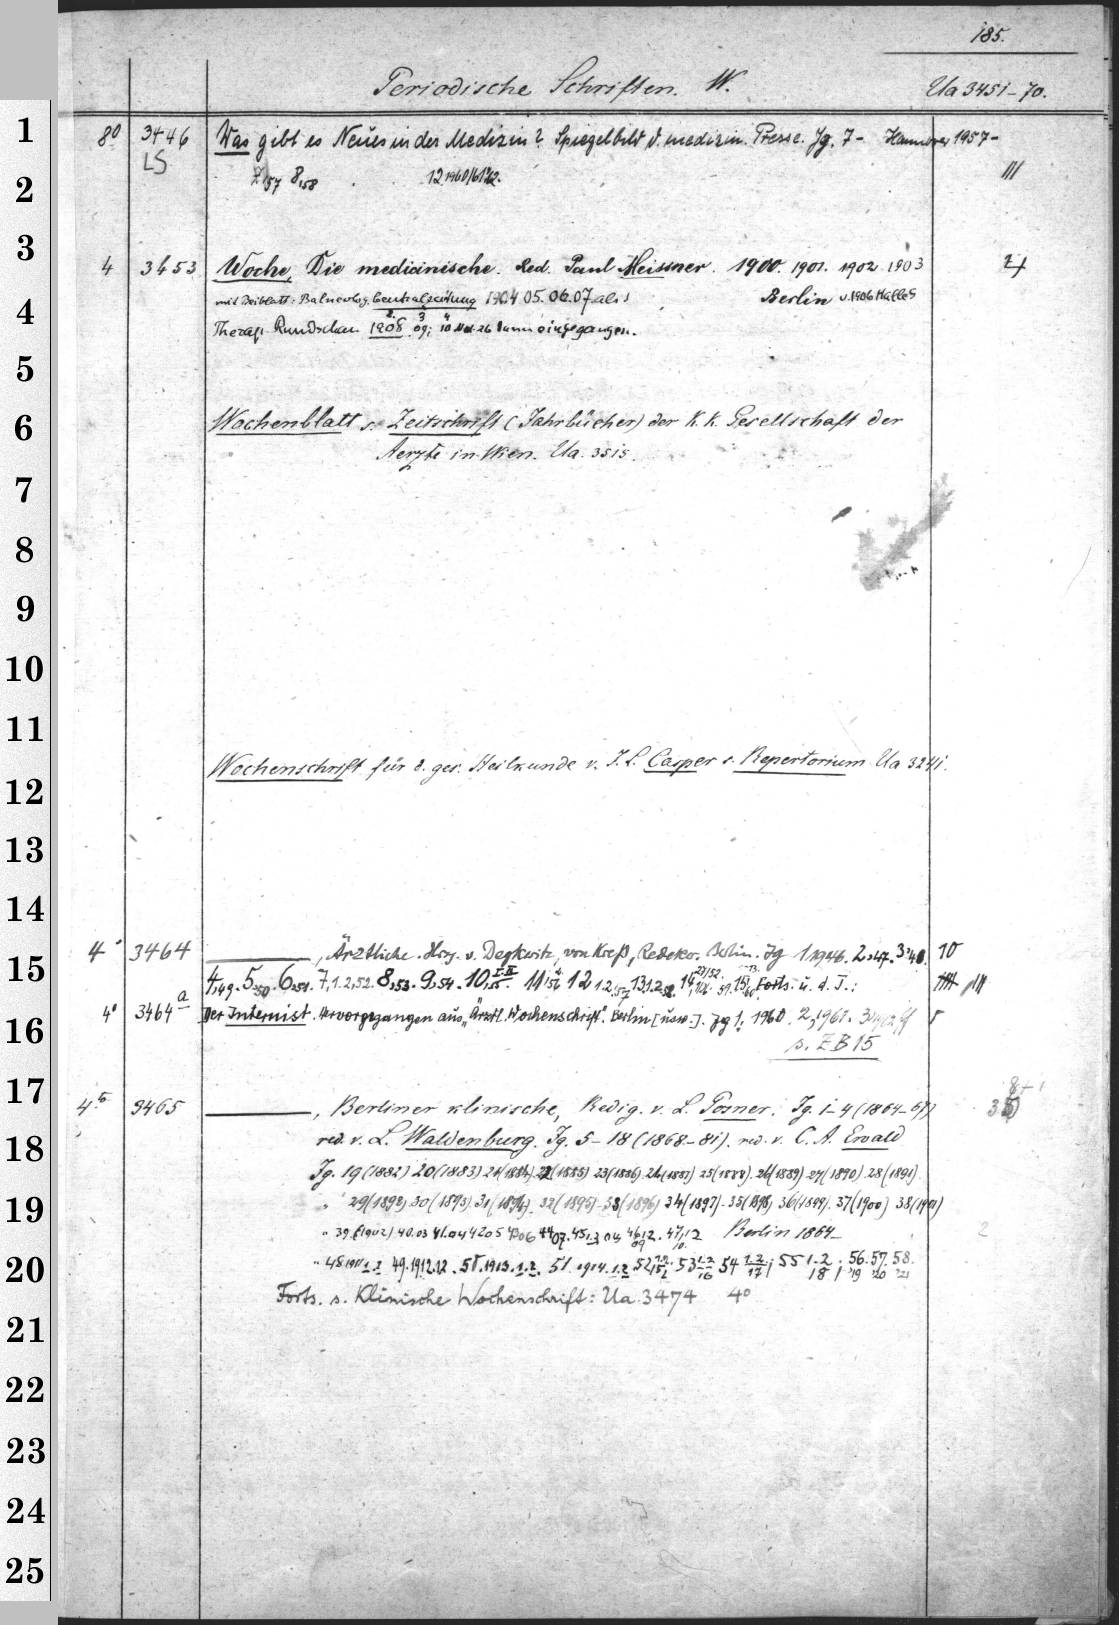 185.
Periodische Schriften. W. Ua 3451-70.
1
8° 3446 Was gibt es Neues in der Medizin? Spiegelbild d. medizin. Presse. Jg. 7- Hannover 1957-
LS
2
7,57 8,58 12 1960/61/62. III
3
4 3453 Woche, Die medicinische. Red. Paul Meissner. 1900. 1901. 1902. 1903 4
4
mit Beiblatt: Balneolog. Centralzeitung 1904 05. 06. 07 als: Berlin u. 1906 Halle S
Therap. Rundschau 1908. 09; 10 Nr. 26 dann eingegangen.
5
6
Wochenblatt s. Zeitschrift (Jahrbücher) der K. K. Gesellschaft der
Aerzte in Wien. Ua. 3515.
7
8
9
10
11
Wochenschrift für d. ges. Heilkunde v. J. L. Casper s. Repertorium Ua 3241.
12
13
14
4° 3464 ———, Ärztliche. Hrsg. v. Degkwitz, von Kreß, Redeker. Berlin. Jg 1 1946. 2,47. 3,48. 10
15
4,49. 5,50. 6,51. 7,1.2,52. 8,53. 9,54. 10,55. I-II 11,56 12 1.2.57 13 1.2.58. 14 Forts. u. d. T.:
4° 3464 a Der Internist. Hervorgegangen aus „Ärztl. Wochenschrift". Berlin [usw.]. Jg 1, 1960. 2,1961. 3,1962 ff
16
s. ZB 15
17
4° 3465 ———, Berliner klinische, Redig. v. L. Posner. Jg. 1-4 (1864-67)
18
red. v. L. Waldenburg. Jg. 5-18 (1868-81). red. v. C. A. Ewald
Jg. 19 (1882) 20 (1883) 21 (1884) 22 (1885) 23 (1886) 24 (1887) 25 (1888). 26 (1889) 27 (1890) 28 (1891)
19
" 29 (1892) 30 (1893) 31 (1894) 32 (1895) 33 (1896) 34 (1897) 35 (1898) 36 (1899) 37 (1900) 38 (1901)
" 39. (1902) 40.03 41.04 42 05 43 06 44 07. 45 46 47 Berlin 1864- 2
20
" 48 1911 1.2 49. 1912. 1.2 . 50. 1913. 1.2. 51. 1914. 1.2 52 53 1.2 16 54 1.2 17; 55 1-2 18; 56. 19 57. 20 58. 21
Forts. s. Klinische Wochenschrift: Ua 3474 4°
21
22
23
24
25